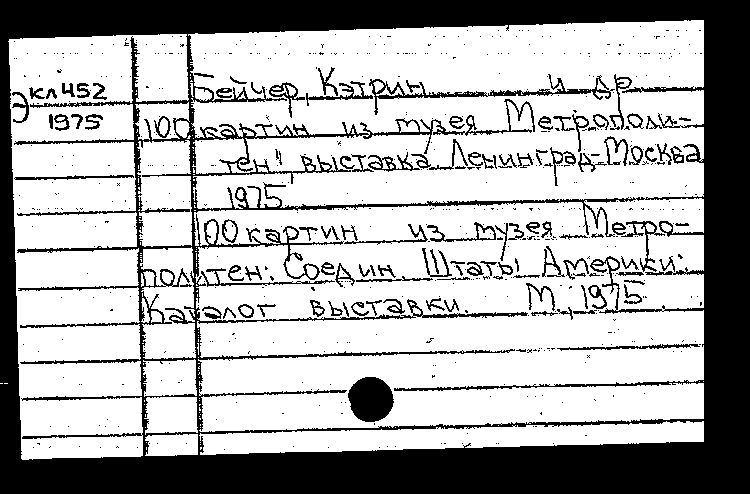 Э кл 452
1975
Бейчер, Кэтрин и др
100 картин из музея Метрополи-
тен", выставка. Ленинград-Москва
1975
100 картин из музея Метро-
политен: Соедин. Штаты Америки:
Каталог выставки. М, 1975.